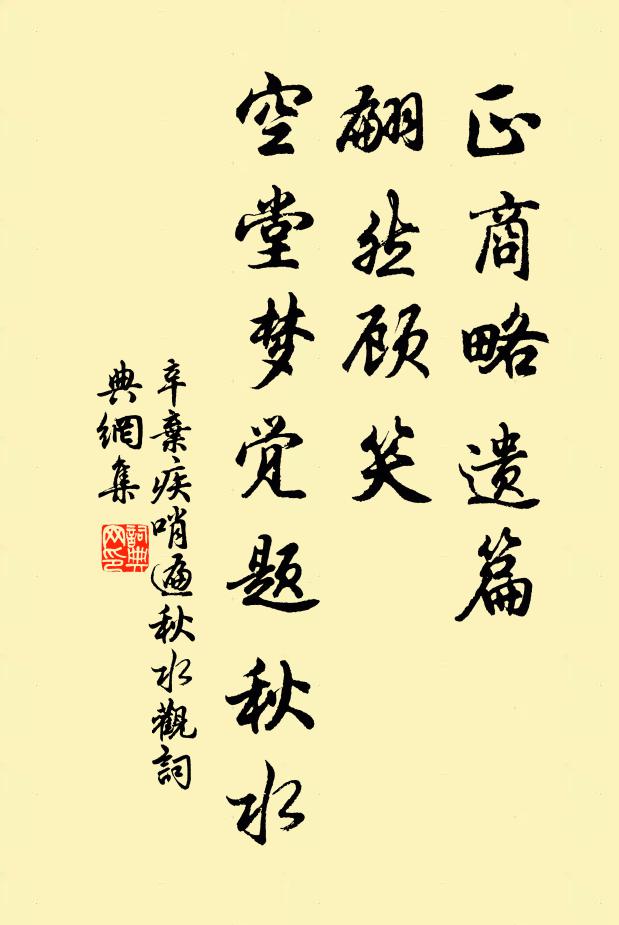 正商略遗篇
翩然顾笑
空堂梦觉题秋水
辛棄疾哨遍秋水觀詞
典網集
詞典
网印